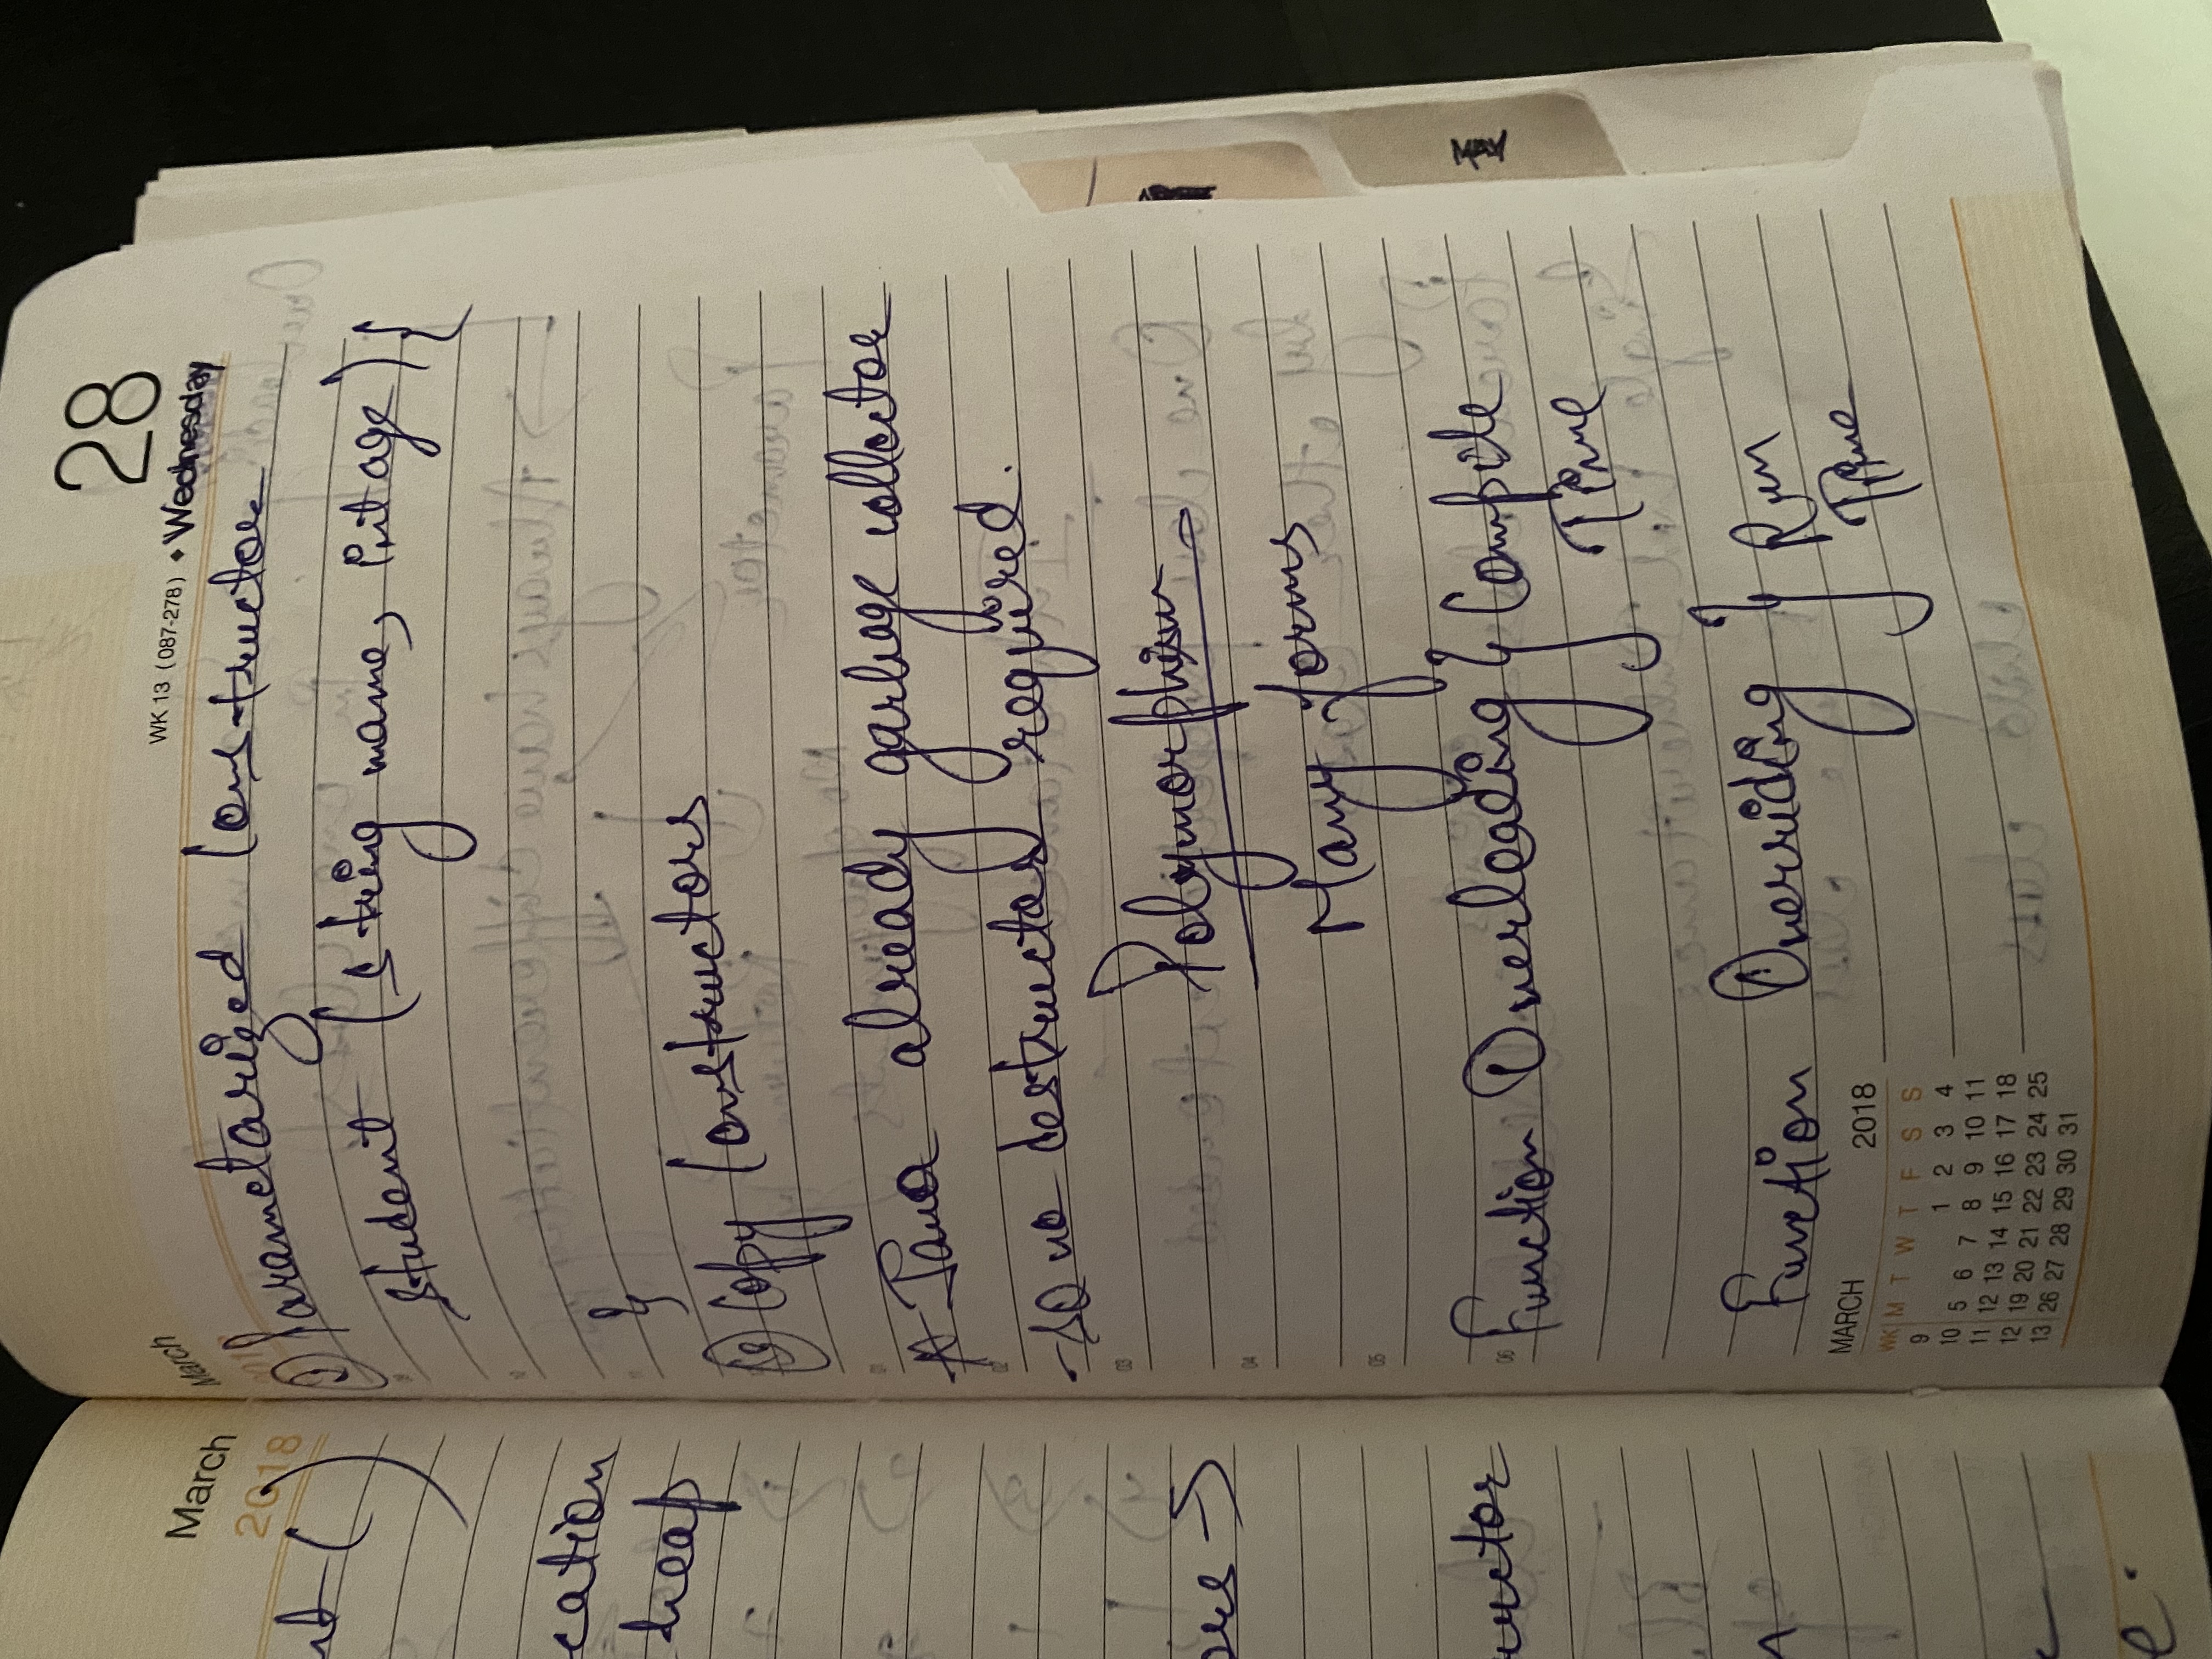 March
2018
nt ( )
cation
heap
ors →
uctor
e.
March
28
WK 13 (087-278) ◆ Wednesday
Parametarized Constructor
student (string name, int age) {
}
③ Copy Constructors
Java already garbage collector
- so no destructor required.
Polymorphism
Many forms
Function Overloading } Compile
Time
Function Overriding } Run
Time
01
02
03
04
05
06
MARCH 2018
WK M T W T F S S
9 1 2 3 4
10 5 6 7 8 9 10 11
11 12 13 14 15 16 17 18
12 19 20 21 22 23 24 25
13 26 27 28 29 30 31
MAY